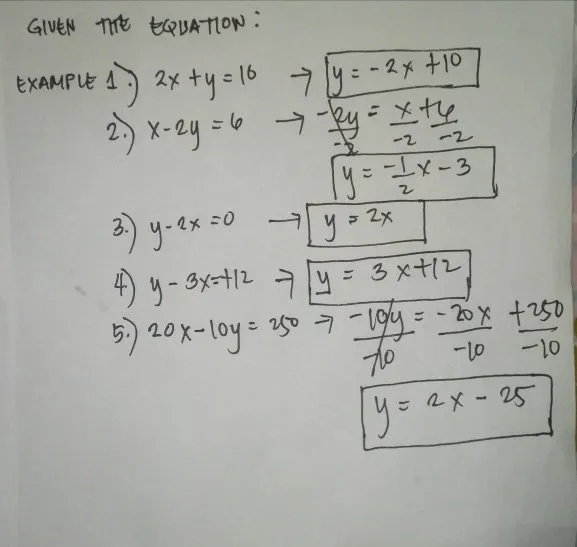 GIVEN THE EQUATION:
EXAMPLE 1.) 2x + y = 10 → y = -2x + 10
2.) x - 2y = 6 → -2y/-2 = x/-2 + 6/-2
y = -1/2 x - 3
3.) y - 2x = 0 → y = 2x
4.) y - 3x = +12 → y = 3x + 12
5.) 20x - 10y = 250 → -10y/-10 = -20x/-10 + 250/-10
y = 2x - 25